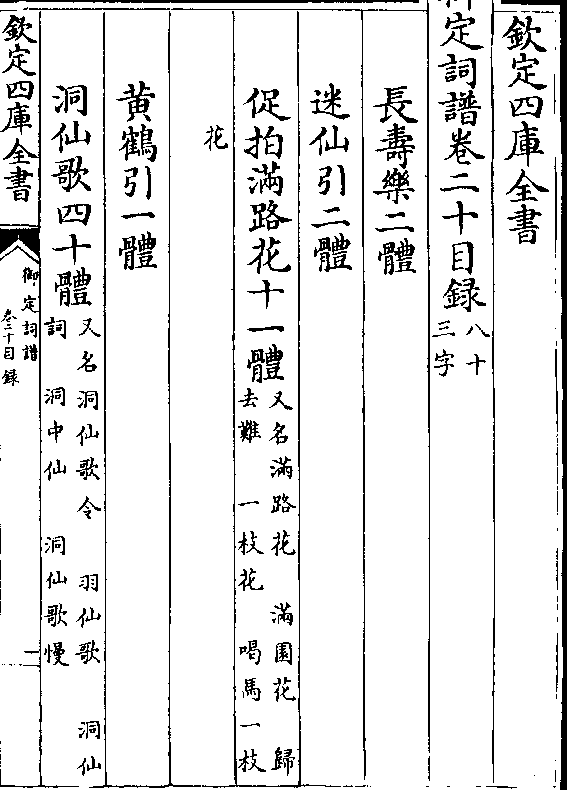 欽定四庫全書
御定詞譜卷二十目録八十三字
長壽樂二體
迷仙引二體
促拍滿路花十一體又名滿路花　滿園花　歸去難　一枝花　喝馬一枝
花
黃鶴引一體
洞仙歌四十體又名洞仙歌令　羽仙歌　洞仙詞　洞中仙　洞仙歌慢
欽定四庫全書
御定詞譜
卷二十目録
一